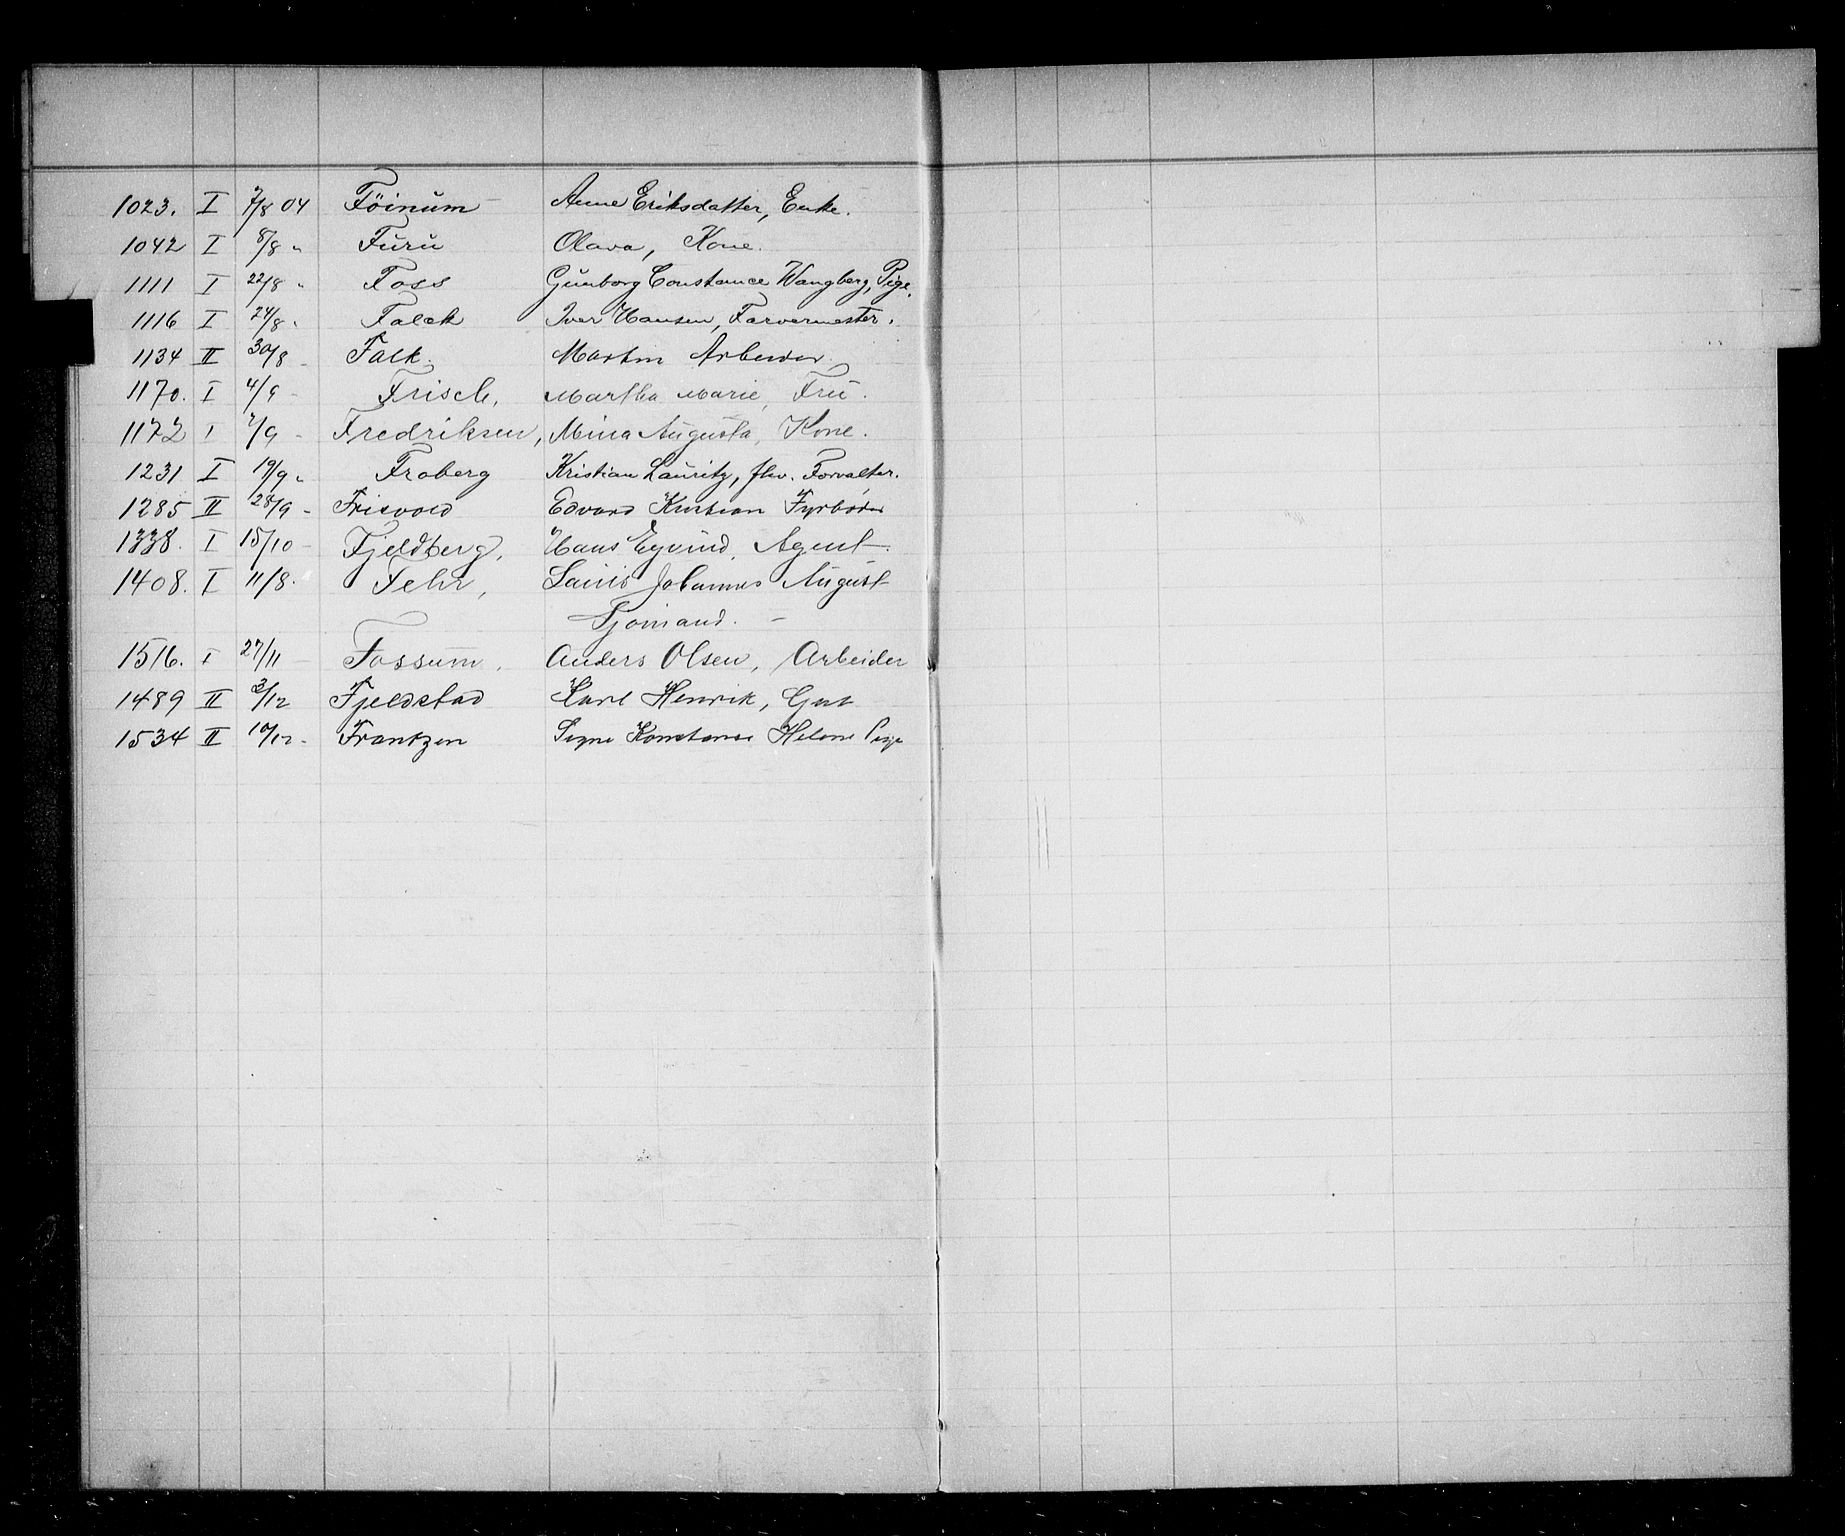 1023. I 7/8 04 Föinum Anne Eriksdatter, Enke.
1042 I 8/8 " Furu Olava, Kone.
1111 I 22/8 " Foss Gunborg Constance Wangberg, Pige.
1116 I 24/8 " Falck Iver Hansen, Farvermester.
1134 II 30/8 - Falk. Martin Arbeider.
1170. I 4/9 - Frisch, Martha Marie, Fru.
1172 I 7/9 - Fredriksen, Mina Augusta, Kone.
1231 I 19/9 " Froberg Kristian Lauritz, fhv. Forvalter.
1285 II 28/9 - Frisvold Edvard Kristian Fyrbøder
1338. I 15/10 - Fjeldberg, Hans Eyvind, Agent.
1408. I 11/8. Fehr, Louis Johannes August
Sjømand. -
1516. I 27/11 - Fossum, Anders Olsen, Arbeider
1489 II 3/12 Fjeldstad Karl Henrik, Gut
1534 II 10/12 - Frantzen Signe Konstanse Helene Pige